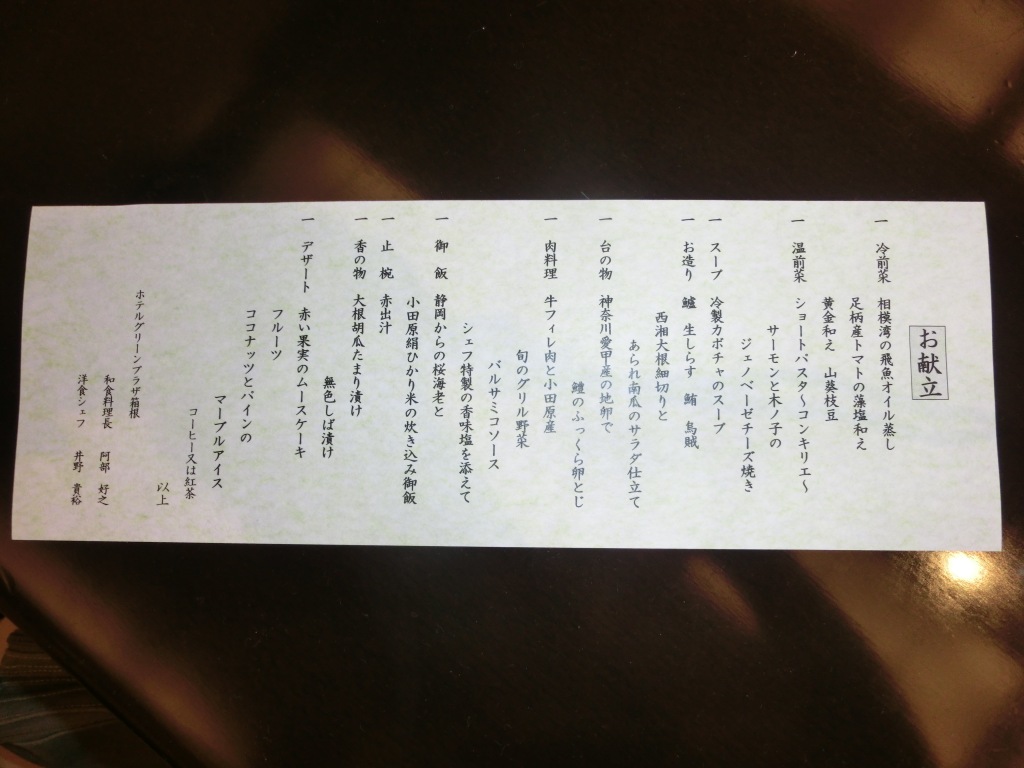 お献立
一 冷前菜 相模湾の飛魚オイル蒸し
足柄産トマトの藻塩和え
黄金和え 山葵枝豆
一 温前菜 ショートパスタ～コンキリエ～
サーモンと木ノ子の
ジェノベーゼチーズ焼き
一 スープ 冷製カボチャのスープ
一 お造り 鱸 生しらす 鮪 烏賊
西湘大根細切りと
あられ南瓜のサラダ仕立て
一 台の物 神奈川愛甲産の地卵で
鱧のふっくら卵とじ
一 肉料理 牛フィレ肉と小田原産
旬のグリル野菜
バルサミコソース
シェフ特製の香味塩を添えて
一 御飯 静岡からの桜海老と
小田原絹ひかり米の炊き込み御飯
一 止椀 赤出汁
一 香の物 大根胡瓜たまり漬け
無色しば漬け
一 デザート 赤い果実のムースケーキ
フルーツ
ココナッツとパインの
マーブルアイス
コーヒー又は紅茶
以上
ホテルグリーンプラザ箱根
和食料理長 阿部 好之
洋食シェフ 井野 貴裕